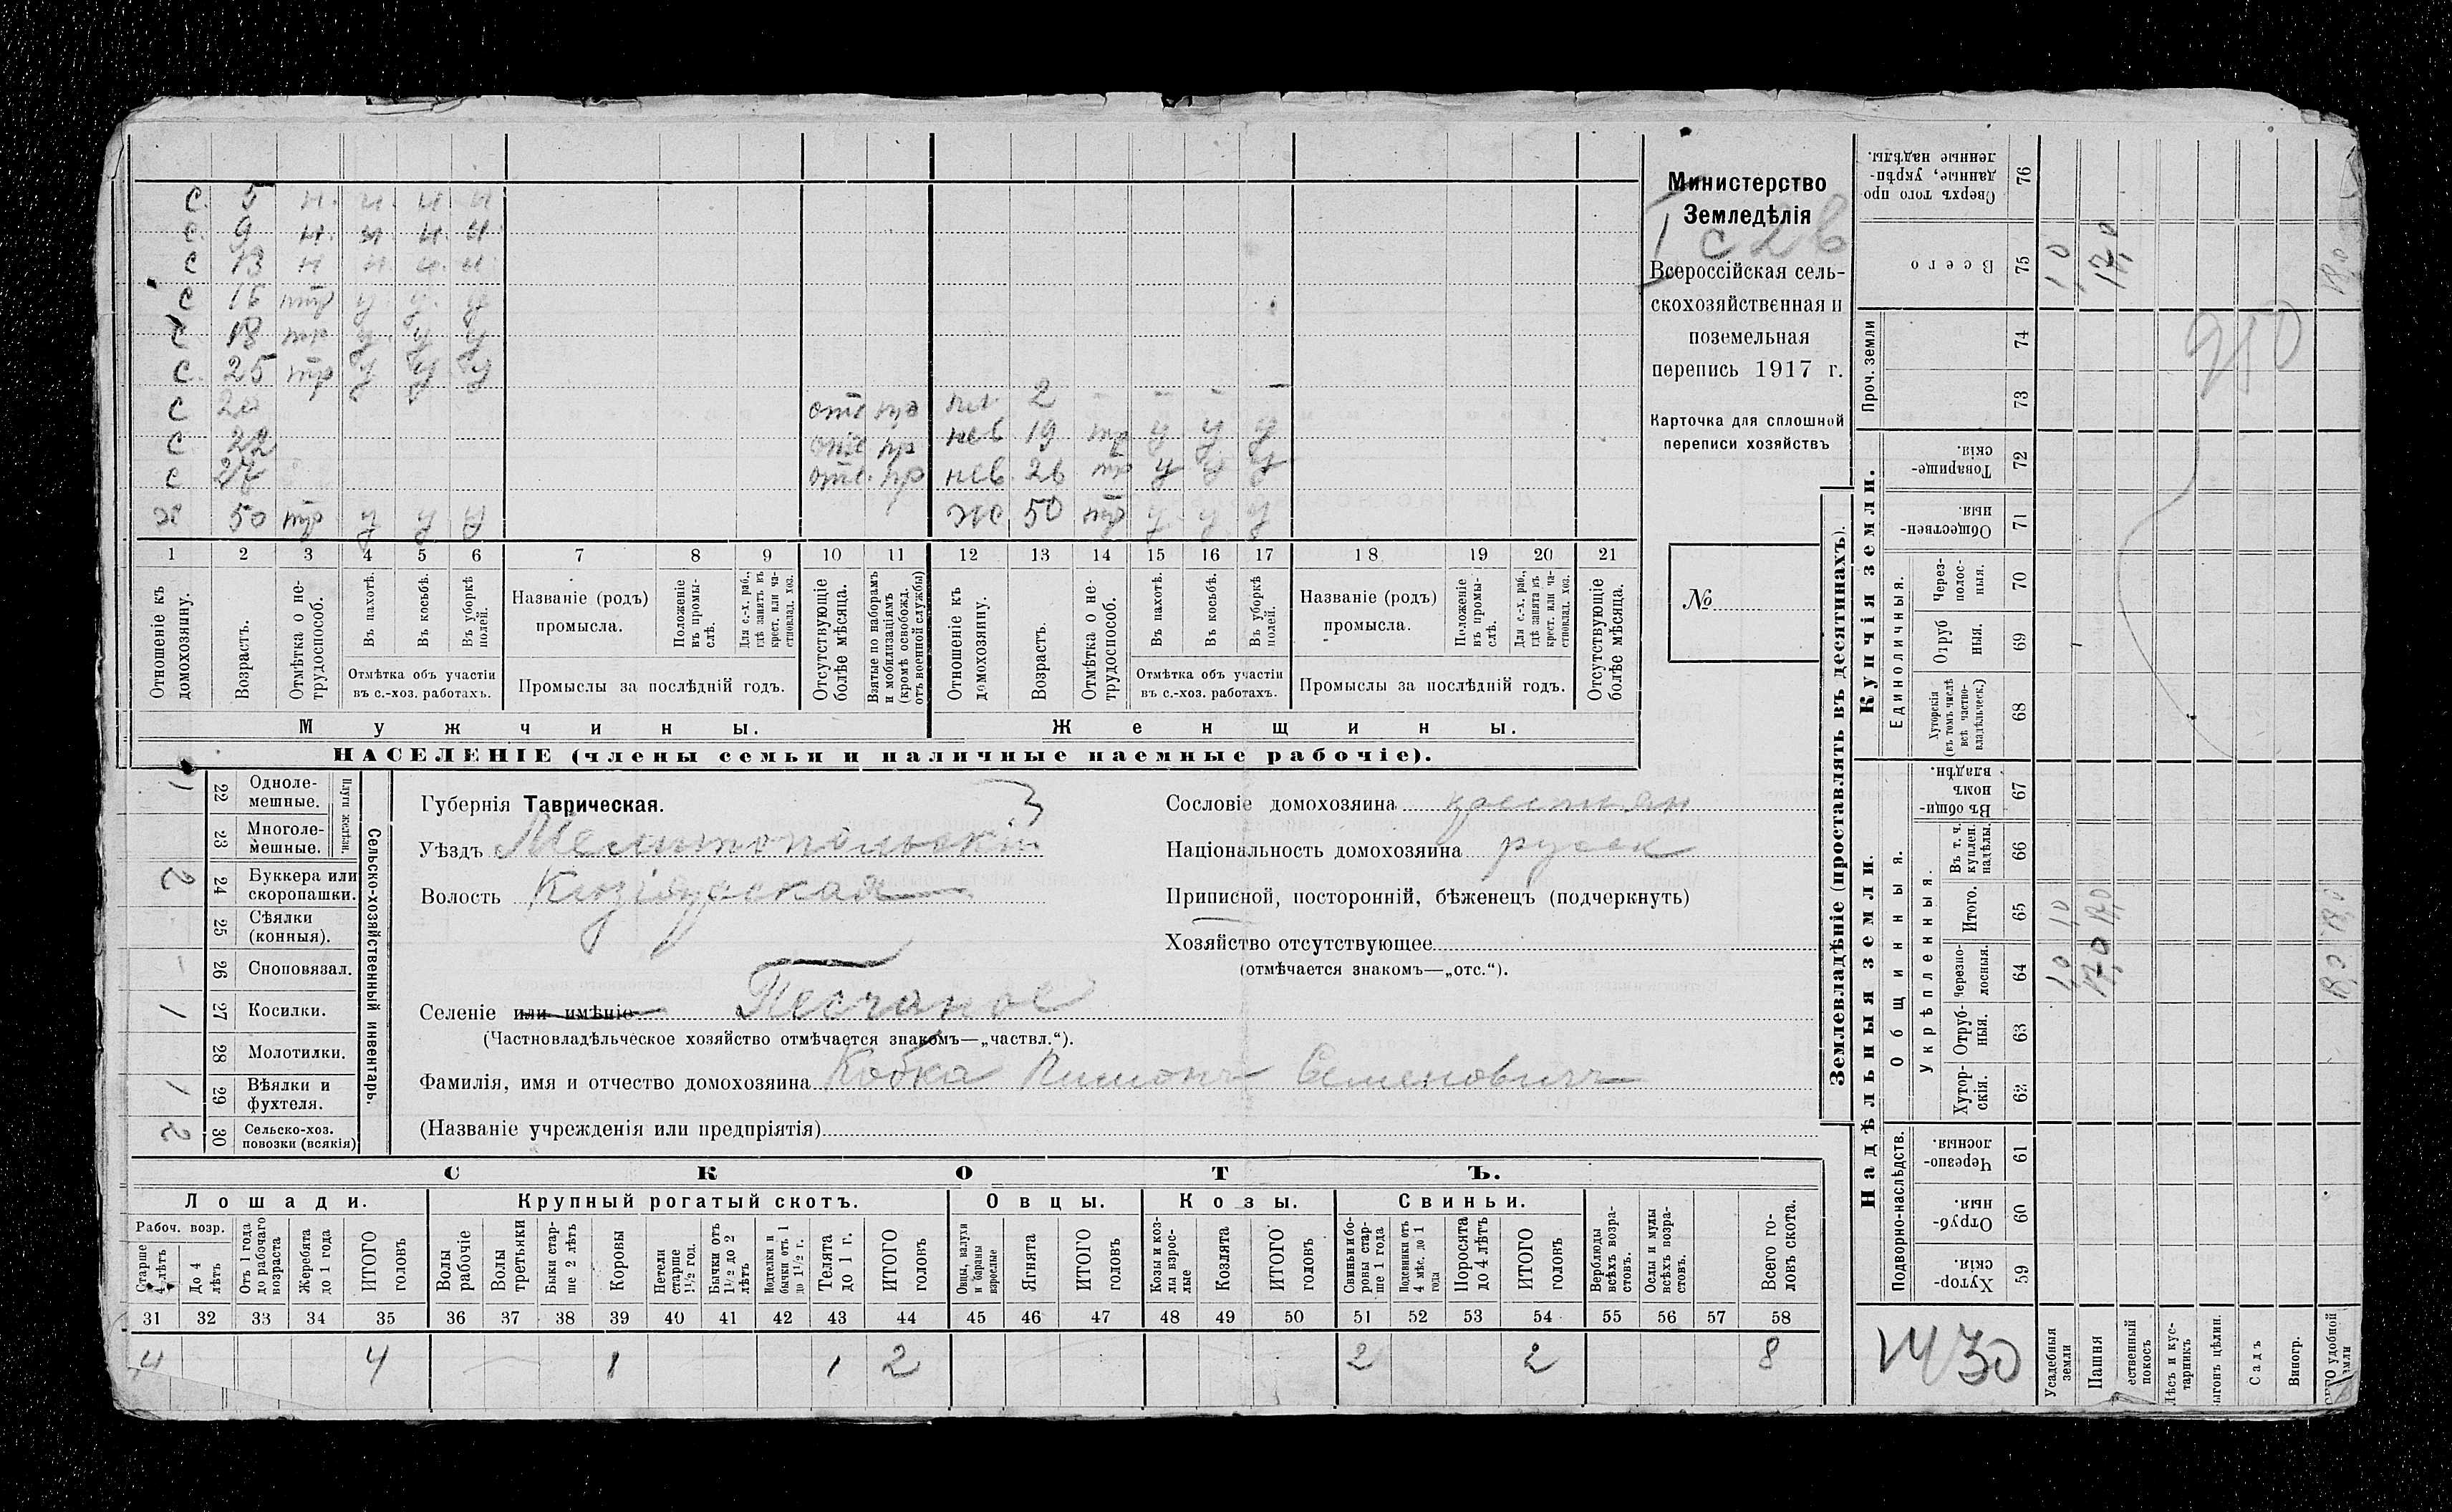 с. 5 н. н. н. н
с. 9 н. н. н. н.
с 13 н н. н. н.
с 16 тр у. у. у
с 18 тр у. у у
с. 25 тр у у у
с 20 отс пр пл. 2 – – – –
с 22 отс пр нев 19 тр у у у
с 27 отс. пр нев. 26 тр у у у
х 50 тр у у у же 50 тр у. у у
1 2 3 4 5 6 7 8 9 10 11 12 13 14 15 16 17 18 19 20 21
Отношеніе къ домохозяину.
Возрастъ.
Отмѣтка о нетрудоспособ.
Въ пахотѣ.
Въ косьбѣ.
Въ уборкѣ полей.
Отмѣтка объ участіи въ с.-хоз. работахъ.
Названіе (родъ) промысла.
Положеніе въ промыслѣ.
Для с.-х. раб., гдѣ занятъ въ крест. или частновлад. хоз.
Промыслы за послѣдній годъ.
Отсутствующіе болѣе мѣсяца.
Взятые по наборамъ и мобилизаціямъ (кромѣ освобожд. отъ военной службы)
Отношеніе къ домохозяину.
Возрастъ.
Отмѣтка о нетрудоспособ.
Въ пахотѣ.
Въ косьбѣ.
Въ уборкѣ полей.
Отмѣтка объ участіи въ с.-хоз. работахъ.
Названіе (родъ) промысла.
Положеніе въ промыслѣ.
Для с.-х. раб., гдѣ занята въ крест. или частновлад. хоз.
Промыслы за послѣдній годъ.
Отсутствующіе болѣе мѣсяца.
Мужчины. Женщины.
НАСЕЛЕНІЕ (члены семьи и наличные наемные рабочіе).
Министерство
Земледѣлія
I с 2в
Всероссійская сель-
скохозяйственная и
поземельная
перепись 1917 г.
Карточка для сплошной
переписи хозяйствъ
№
1 22 Однолемешные.
23 Многолемешные.
Плуги желѣзн.
2 24 Буккера или скоропашки.
25 Сѣялки (конныя).
– 26 Сноповязал.
1 27 Косилки.
28 Молотилки.
1 29 Вѣялки и фухтеля.
2 30 Сельско-хоз. повозки (всякія)
Сельско-хозяйственный инвентарь.
Губернія Таврическая. 3
Уѣздъ Мелитопольскій
Волость
Селеніе или имѣніе Песчаное
(Частновладѣльческое хозяйство отмѣчается знакомъ—„частвл.“).
Фамилія, имя и отчество домохозяина Кобка Пимонъ Семеновичъ
(Названіе учрежденія или предпріятія)
Сословіе домохозяина крестьян
Національность домохозяина русск
Приписной, посторонній, бѣженецъ (подчеркнуть)
Хозяйство отсутствующее
(отмѣчается знакомъ—„отс.“).
СКОТЪ.
Лошади. Крупный рогатый скотъ. Овцы. Козы. Свиньи.
Рабоч. возр.
Старше 4 лѣтъ
До 4 лѣтъ
Отъ 1 года до рабочаго возраста
Жеребята до 1 года
ИТОГО головъ
Волы рабочіе
Волы третьяки
Быки старше 2 лѣтъ
Коровы
Нетели старше 1½ год.
Бычки отъ 1½ до 2 лѣтъ
Подтелки и бычки отъ 1 до 1½ г.
Телята до 1 г.
ИТОГО головъ
Овцы, валухи и бараны взрослые
Ягнята
ИТОГО головъ
Козы и козлы взрослые
Козлята
ИТОГО головъ
Свиньи и боровы старше 1 года
Подсвинки отъ 4 мѣс. до 1 года
Поросята до 4 лѣтъ
ИТОГО головъ
Верблюды всѣхъ возрастовъ.
Ослы и мулы всѣхъ возрастовъ.
Всего головъ скота.
31 32 33 34 35 36 37 38 39 40 41 42 43 44 45 46 47 48 49 50 51 52 53 54 55 56 57 58
4 4 1 1 2 2 2 8
Землевладѣніе (проставлять въ десятинахъ).
Купчія земли.
Надѣльныя земли.
Сверхъ того проданные, укрѣпленные надѣлы. 76
Всего 75 1,0 17,0 18,0
Проч. земли 74 73
950
Товарищескія. 72
Общественныя. 71
Единоличныя.
Черезполосныя. 70
Отрубныя. 69
Хуторскія (въ томъ числѣ всѣ частновладѣльческ.) 68
Общинныя.
Въ общинномъ владѣн. 67
Укрѣпленныя.
Въ т. ч. куплен. надѣлы. 66
Итого. 65 1,0 17,0 18,0
Черезполосныя. 64 1,0 17,0 18,0
Отрубныя. 63
Хуторскія. 62
Подворно-наслѣдств.
Черезполосныя. 61
Отрубныя. 60
Хуторскія. 59
Усадебныя земли
Пашня
ественный покосъ
Лѣсъ и кустарникъ
ыгонъ цѣлин.
Садъ
Виногр.
удобной